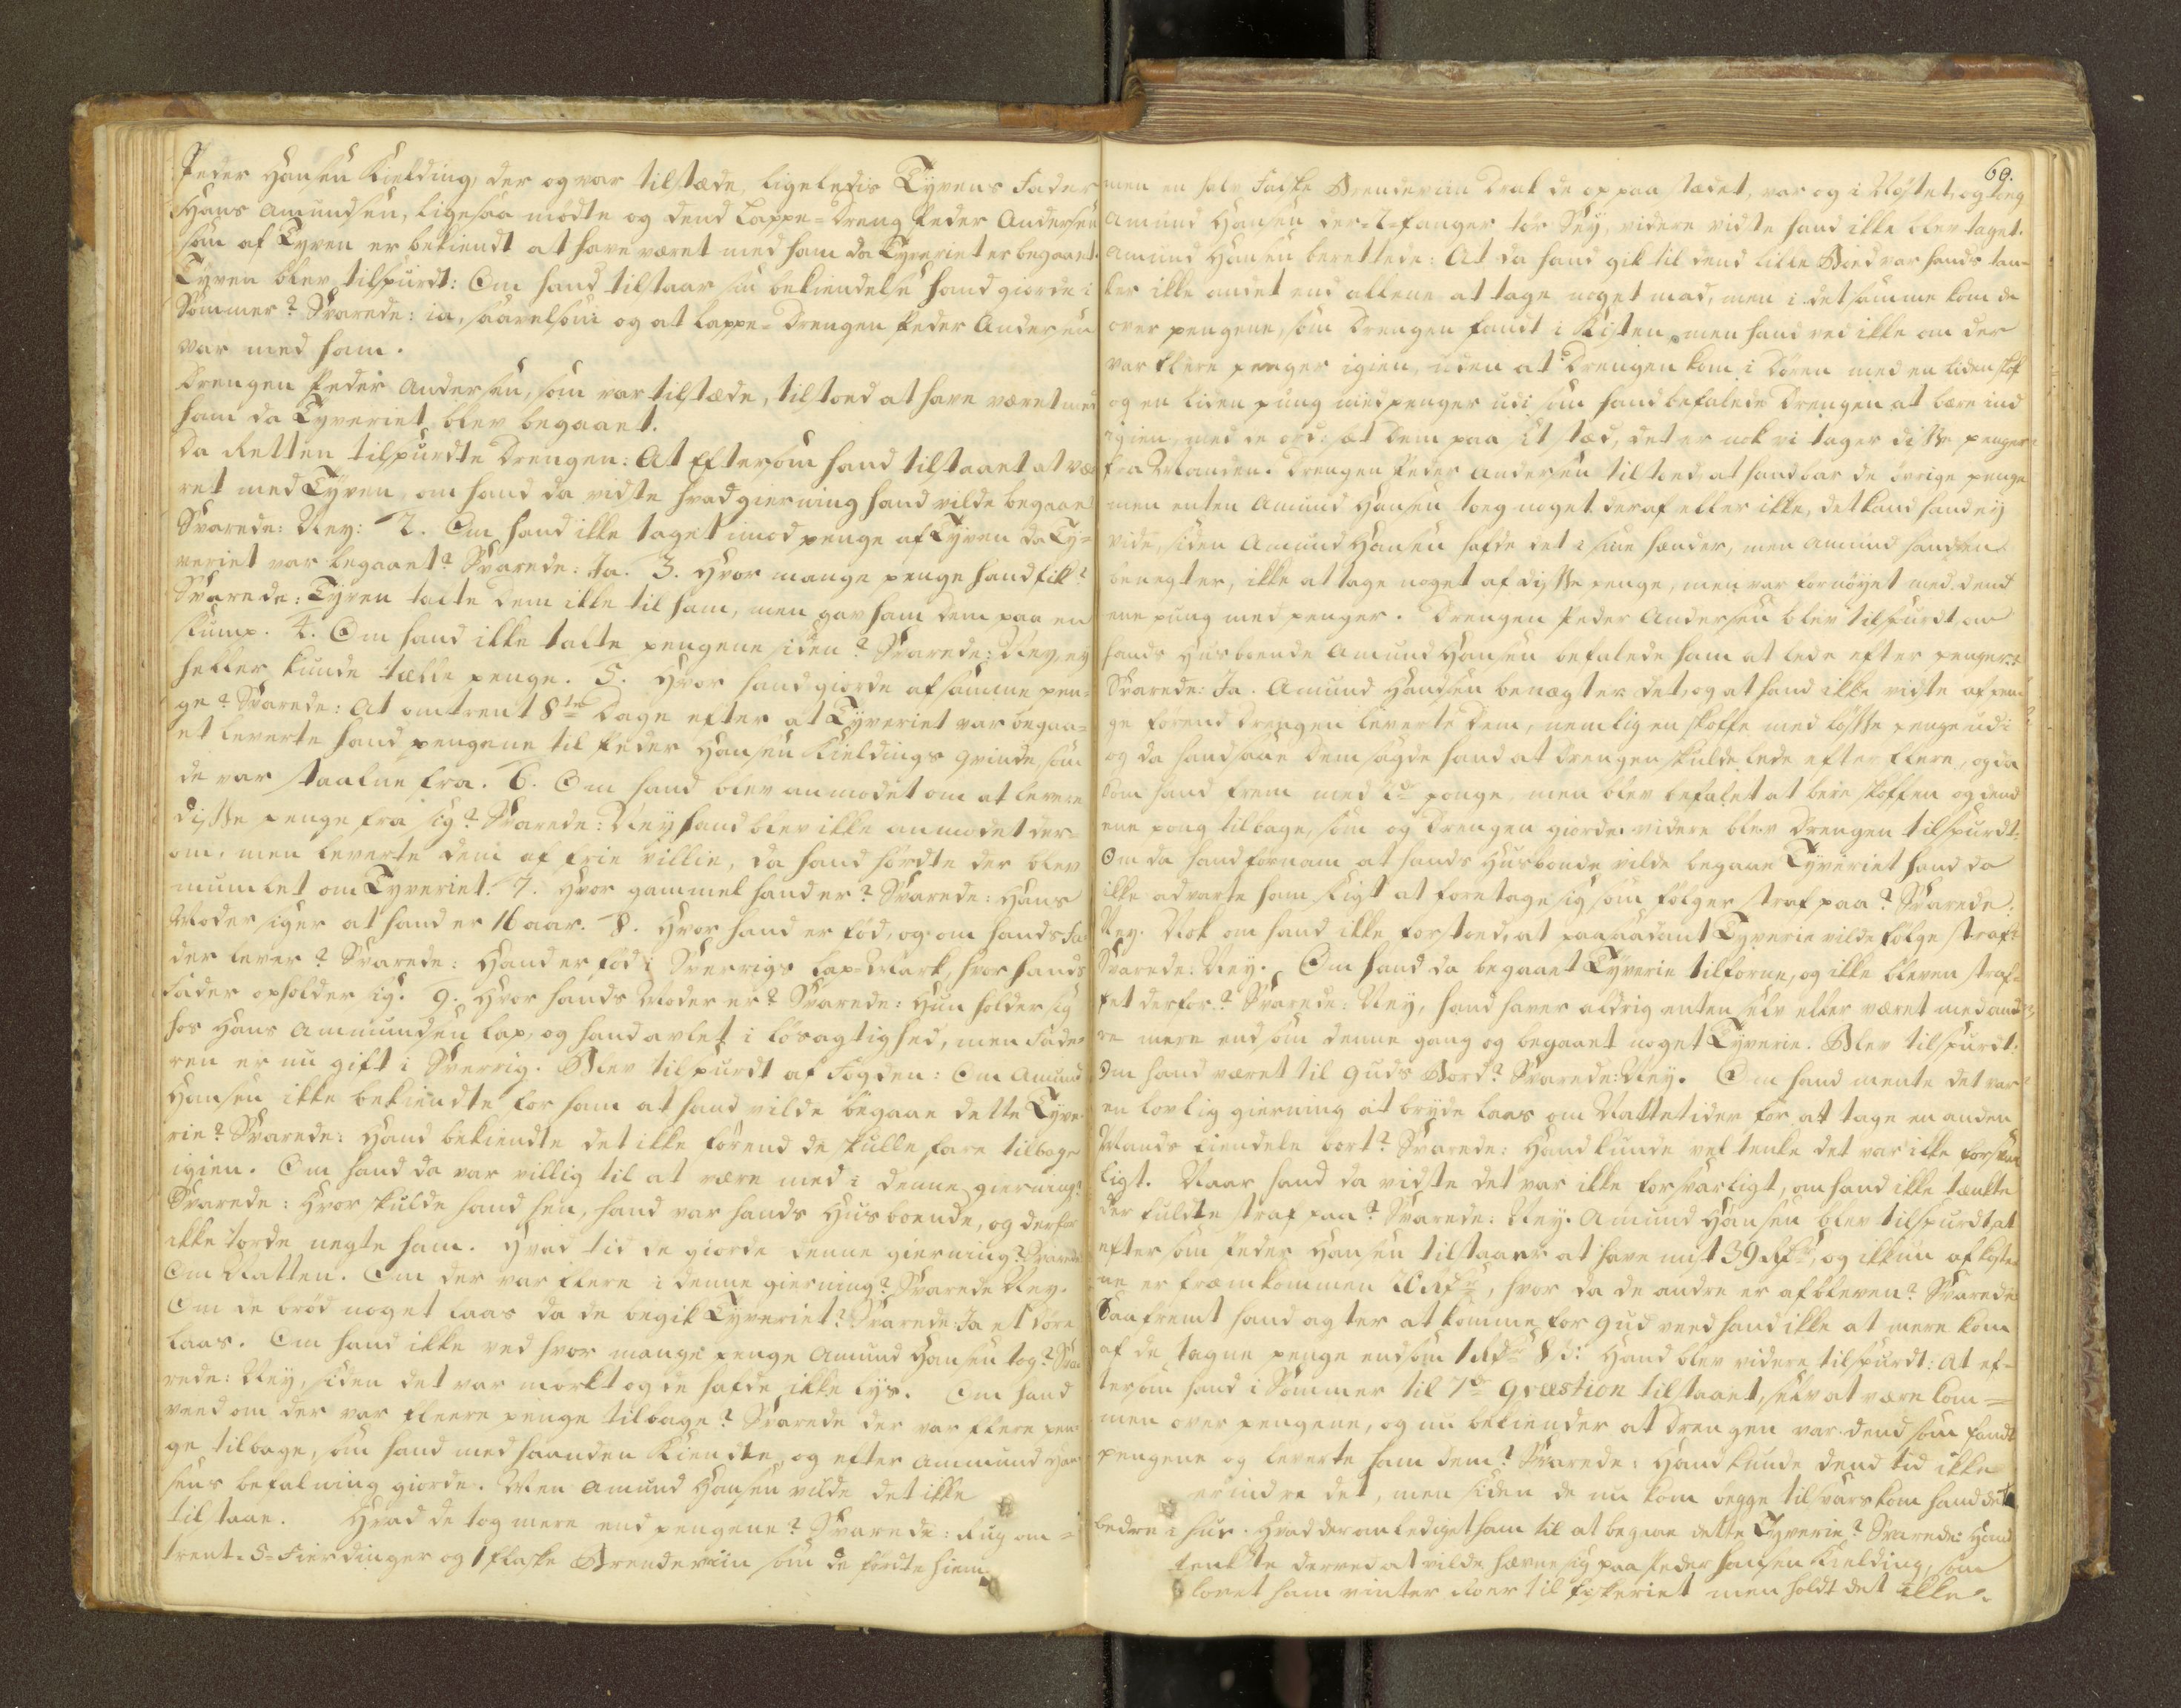 Peder Hansen Kielding, der og var tilstæde, ligeledis Tyvens Fader
Hans Amundsen, ligesaa mødte og dend Lappe-Dreng Peder Andersen
som af Tyven er bekiendt at have været med ham da Tyveriet er begaaet.
Tyven blev tilspurdt: Om hand tilstaar sin bekiendelse hand giorde i
Sommer? Svarede: ia, saavelsom og at Lappe-Drengen Peder Andersen
var med ham.
Drengen Peder Andersen, som var tilstæde, tilstoed at have været med
ham da Tyveriet blev begaaet.
Da Retten tilspurdte Drengen: At Eftersom hand tilstaaet at væ-
ret med Tyven, om hand da vidste hvad gierning hand vilde begaae?
Svarede: Ney: 2. Om hand ikke taget imod penge af Tyven da Ty-
veriet var begaaet? Svarede: Ja. 3. Hvor mange penge hand fik?
Svarede: Tyven talte dem ikke til ham, men gav ham dem paa en
klump. 4. Om hand ikke talte pengene siden? Svarede: Ney, ey
heller kunde tælle penge. 5. Hvor hand giorde af samme pen-
ge? Svarede: At omtrent 8te Dage efter at Tyveriet var begaa-
et leverte hand pengene til Peder Hansen Kieldings qvinde, som
de var staalne fra. 6. Om hand blev anmodet om at levere
disse penge fra sig? Svarede: Ney hand blev ikke anmodet der-
om, men leverte dem af frie villie, da hand hørdte der blev
mumlet om Tyveriet. 7. Hvor gammel hand er? Svarede: Hans
Moder siger at hand er 16 aar. 8. Hvor hand er fød, og om hands Fa-
der lever? Svarede: Hand er fød i Sverrigs Lap-Mark, hvor hands
Fader opholder sig. 9. Hvor hands Moder er? Svarede: Hun holder sig
hos Hans Ammundsen Lap, og hand avlet i løsagtighed, men Fade-
ren er nu gift i Sverrig. Blev tilspurdt af Fogden: Om Amund
Hansen ikke bekiendte for ham at hand vilde begaae dette Tyve-
rie? Svarede: Hand bekiendte det ikke førend de skulle fare tilbage
igien. Om hand da var villig til at være med i denne gierning?
Svarede: Hvor skulde hand hen, hand var hands Husboende, og derfor
ikke torde negte ham. Hvad tid de giorde denne gierning? Svarede
Om Natten. Om der var flere i denne gierning? Svarede Ney.
Om de brød noget laas da de begik Tyveriet? Svarede: Ja et Døre
laas. Om hand ikke ved hvor mange penge Amund Hansen tog? Sva-
rede: Ney, siden det var mørkt og de hafde ikke lys. Om hand
veed om der var fleere penge tilbage? Svarede der var flere pen-
ge tilbage, som hand med haanden kiendte, og efter Ammund Han-
sens befalning giorde. Men Amund Hansen vilde det ikke
tilstaae. Hvad de tog mere end pengene? Svarede: Rug om-
trent 5 Fierdinger og 1 flaske Brendeviin som de førdte hiem
60.
men en halv Faske Brendeviin Drak de op paa stædet, var og i Nøstet, og tog
Amund Hansen der 2 fanger tør Sey, videre vidste hand ikke blev taget.
Amund Hansen berettede: At da hand gik til dend lille Boed var hands tan-
ker ikke andet end allene at tage noget mad, men i det samme kom de
over pengene, som Drengen fandt i Kisten, men hand ved ikke om der
var flere penger igien, uden at Drengen kom i Døren med en liden
og en liden pung med penger udi som hand befalede Drengen at bære ind
igien, med de ord: sæt dem paa it stæd, det er nok vi tager disse penger
fra Manden. Drengen Peder Andersen tilstoed, at hand bar de øvrige penge
men enten Amund Hansen toeg noget deraf eller ikke, det kand hand ey
vide, siden Amund Hansen hafde det i sine hænder, men Amund Handsen
benegter, ikke at tage noget af disse penge, men var fornøyet med dend
ene pung med penger. Drengen Peder Andersen blev tilspurdt om
hands Husboende Amund Hansen befalede ham at lede efter penger?
Svarede: Ja. Amund Handsen benægter det, og at hand ikke vidste af pen-
ge førend Drengen leverte dem, nemlig en med løsse penge udi
og da hand saae dem sagde hand at Drengen skulde lede efter flere, og da
kom hand frem med 2de ponge, men blev befalet at bere og dend
ene pong tilbage, som og Drengen giorde, videre blev Drengen tilspurdt:
Om da hand fornam at hands Husbonde vilde begaae Tyveriet hand da
ikke advarte ham sligt at foretage sig som følger straf paa? Svarede:
Ney. Nok om hand ikke forstoed, at paa saadant Tyverie vilde følge straf?
Svarede: Ney. Om hand da begaaet Tyverie tilforne, og ikke bleven straf-
fet derfor? Svarede: Ney, hand haver aldrig enten selv eller været med and-
re mere end som denne gang og begaaet noget Tyverie. Blev tilspurdt:
Om hand været til Guds Bord? Svarede: Ney. Om hand mente det var
en lovlig gierning at bryde laas om Nattetider for at tage en anden
Mands Eiendele bort? Svarede: Hand kunde vel tenke det var ikke forsvar
ligt. Naar hand da vidste det var ikke forsvarligt, om hand ikke tænkte
der fuldte straf paa? Svarede: Ney. Amund Hansen blev tilspurdt, at
eftersom Peder Hansen tilstaaer at have mist 39 Rdr, og ikkun af
ne er fræmkommen 20 Rdr, hvor da de andre er afbleven? Svarede
Saafremt hand agter at komme for Gud veed hand ikke at mere kom
af de tagne penge end som 1 Rdr 8 s: Hand blev videre tilspurdt: At ef-
tersom hand i Sommer til 7de Qvæstion tilstaaet, selv at være kom-
men over pengene, og nu bekiender at Drengen var dend som fandt
pengene og leverte ham dem? Svarede: Hand kunde dend tid ikke
erindre det, men siden de nu kom begge til svars kom hand det
bedre i hue. Hvad der anlediget ham til at begaae dette Tyverie? Svarede: Hand
tenkte derved at vilde hævne sig paa Peder Hansen Kielding, som
lovet ham vinter til fiskeriet men holdt det ikke.